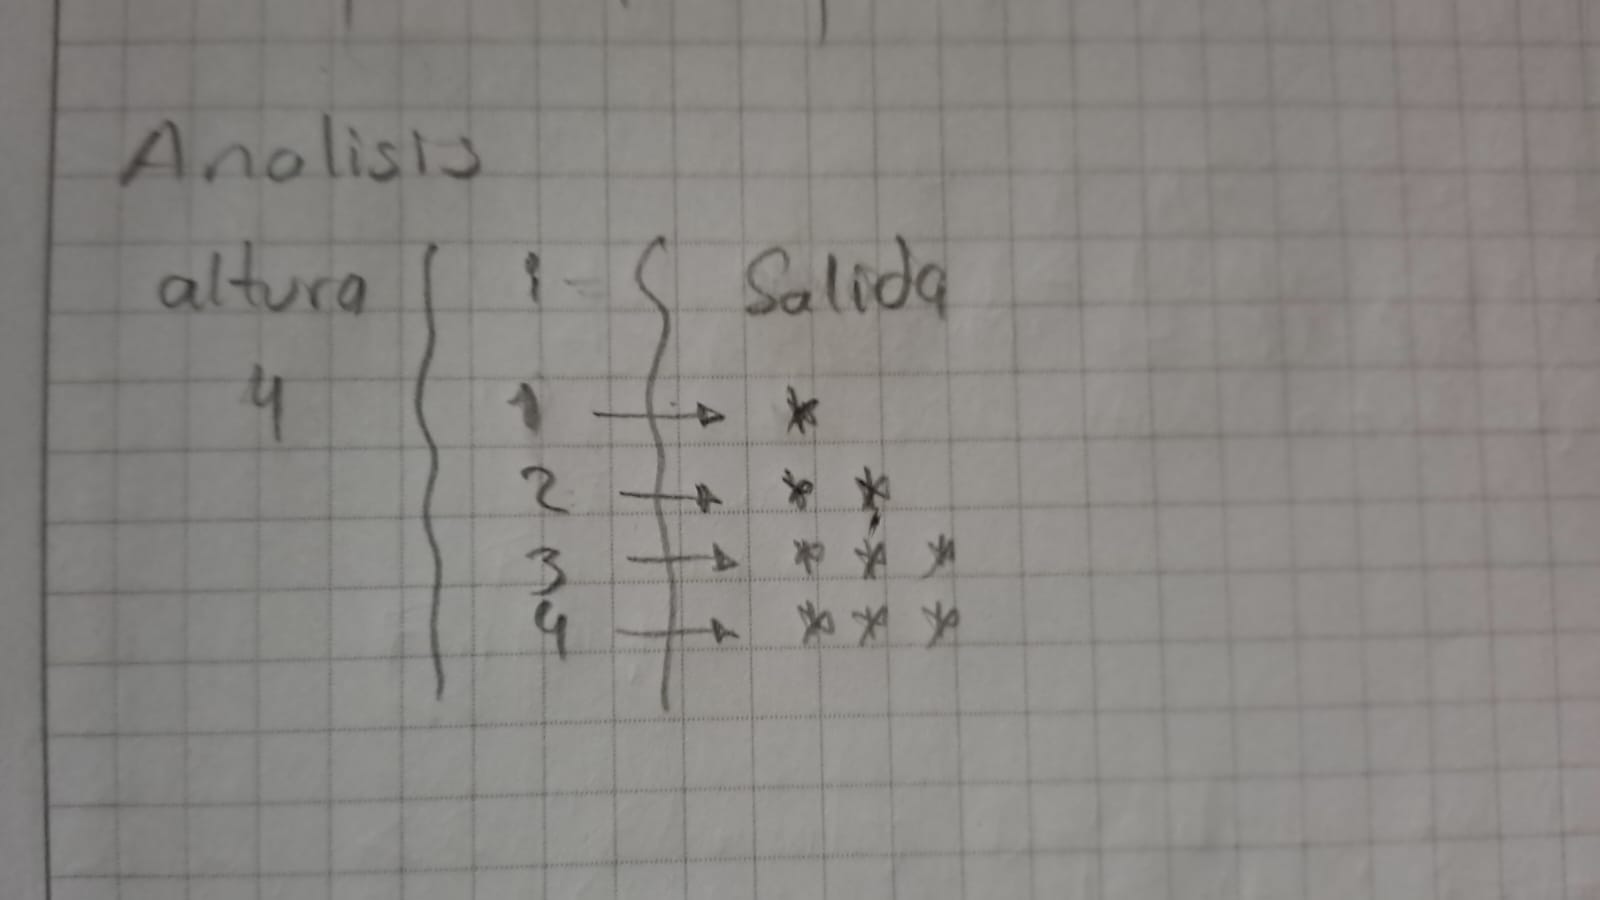 Analisis
altura { i { Salida
4 1 → *
2 → * *
3 → * * *
4 → * * *